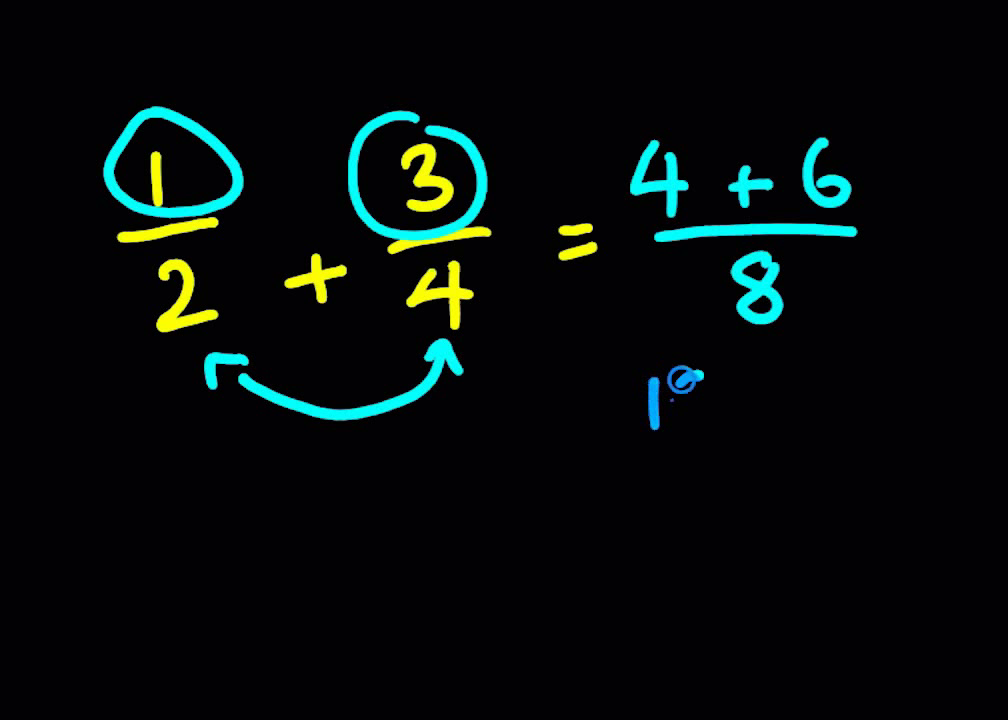 1/2 + 3/4 = (4 + 6)/8
1